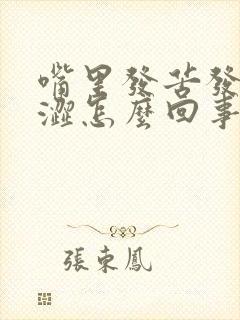 嘴里發苦發
澀怎麼回事
張東鳳